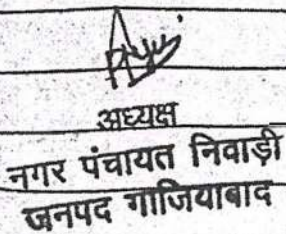 अध्यक्ष
नगर पंचायत निवाड़ी
जनपद गाजियाबाद